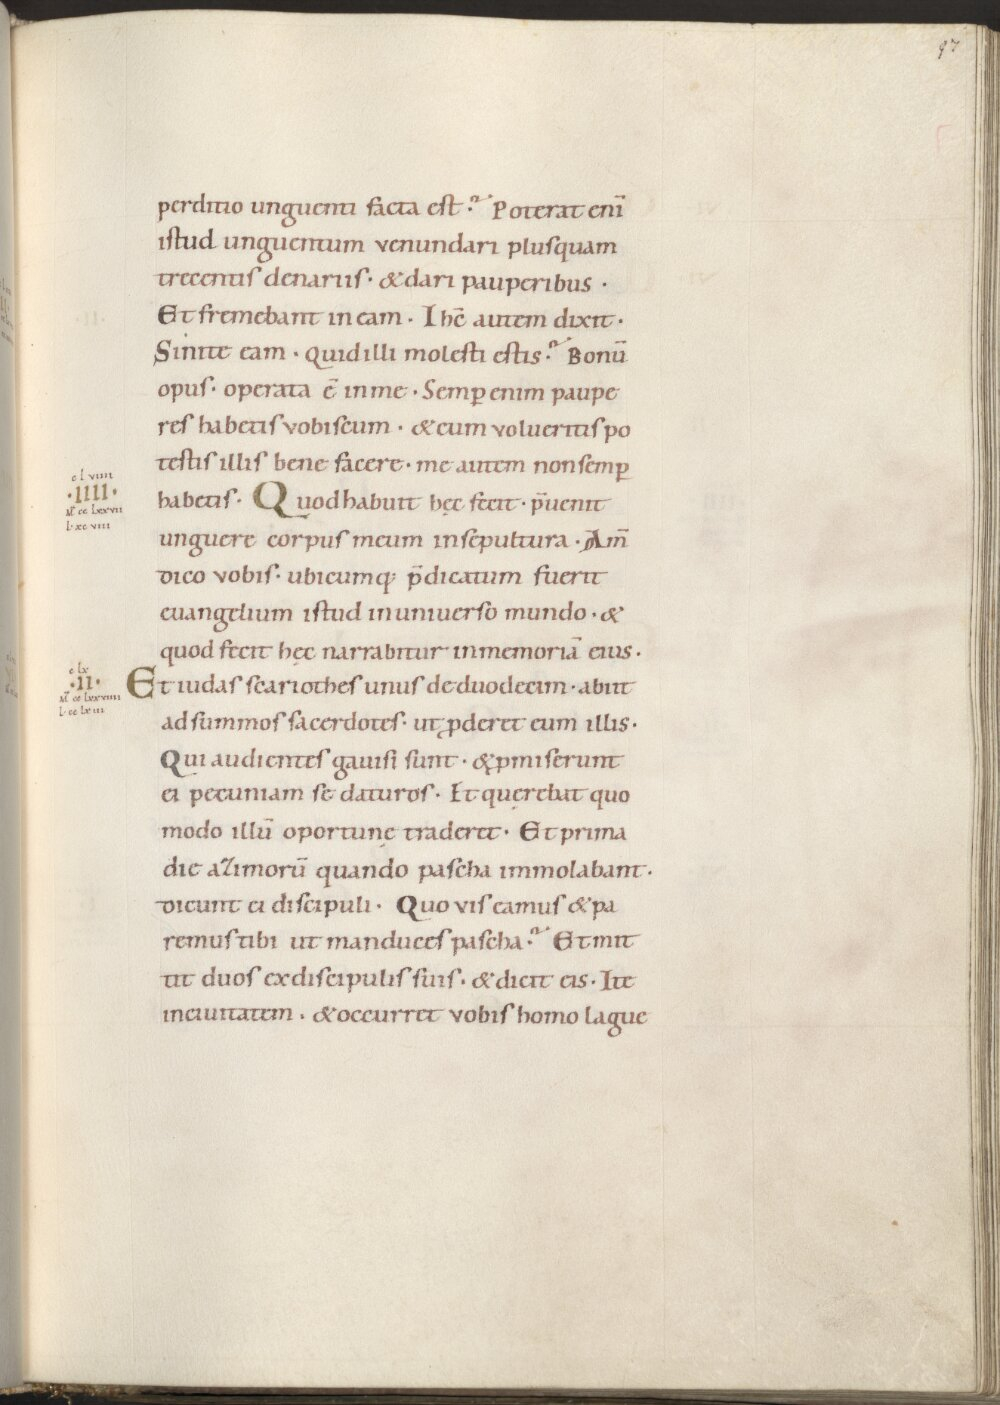 97
perditio unguenti facta est? Poterat enī
istud unguentum venundari plusquam
trecentis denariis· & dari pauperibus·
Et fremebant in eam· Ihc̄ autem dixit·
Sinite eam· quid illi molesti estis? Bonū
opus· operata ē in me· Semꝑ enim paupe
res habetis vobiscum· & cum volueritis po
testis illis bene facere· me autem non semꝑ
c l viiii
·IIII·
M̄ cc lxxvii
l· xc viii
habetis· Quod habuit hęc fecit· p̄uenit
unguere corpus meum in sepultura· Am̄
dico vobis· ubicumq; p̄dicatum fuerit
euangelium istud in uniuerso mundo· &
quod fecit hęc narrabitur in memoriā eius·
c lx
·II·
M̄ cc lxxviiii
l· cc lxiii
Et iudas scariothes unus de duodecim· abiit
ad summos sacerdotes· ut ꝓderet eum illis·
Qui audientes gauisi sunt· & ꝓmiserunt
ei pecuniam se daturos· Et querebat quo
modo illū oportunę traderet· Et prima
die azimorū quando pascha immolabant·
dicunt ei discipuli· Quo vis eamus & pa
remus tibi ut manduces pascha? Et mit
tit duos ex discipulis suis· & dicit eis· Ite
in ciuitatem· & occurret vobis homo lague